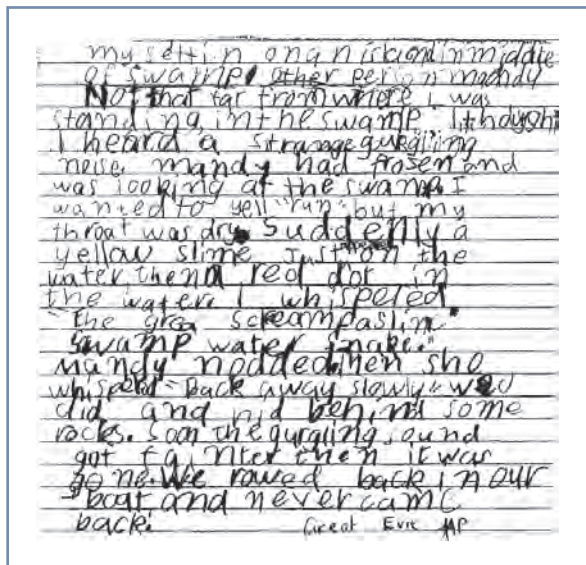 my settin on an island in middle
of swamp. other person mandy
Not that far from where i was
standing in the swamp. I thought
I heard a strange gurgling
noise. mandy had frosen and
was looking at the swamp. I
wanted to yell "run" but my
throat was dry. Suddenly a
yellow slime Just on the
water, then a red dot in
the water. I whispered
"the grea
swamp water snake."
Mandy nodded. then sho
whisperd "Back away slowly" we
did and hid behind some
rocks. Soon the gurgling sound
got fainter then it was
gone. We rowed back in our
boat and never came
back.
Great Evie